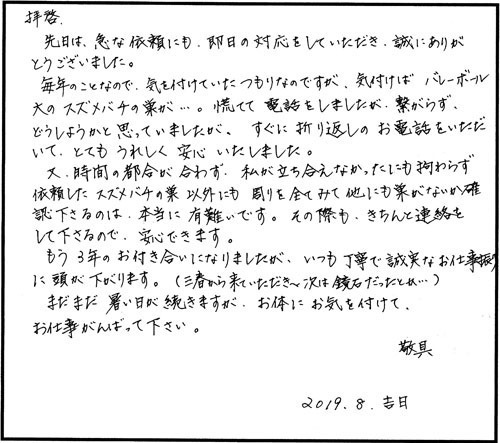 拝啓.
先日は、急な依頼にも、即日の対応をしていただき、誠にありが
とうございました。
毎年のことなので、気を付けていたつもりなのですが、気付けば バレーボール
大の スズメバチの巣が…。慌てて 電話をしましたが、繋がらず、
どうしようかと思っていましたが、すぐに 折り返しの お電話をいただ
いて、とても うれしく 安心 いたしました。
又、時間の都合が合わず、私が立ち会えなかったにも拘わらず
依頼した スズメバチの巣 以外にも 周りを全てみて 他にも巣がないか確
認下さるのは、本当に 有難いです。その際も、きちんと連絡を
して下さるので、安心できます。
もう 3年の お付き合いになりましたが、いつも 丁寧で 誠実な お仕事振り
に 頭が 下がります。(三春から来ていただき〜次は 鏡石だったとか…)
まだまだ 暑い日が 続きますが、お体に お気を付けて、
お仕事がんばって下さい。
敬具
2019.8.吉日